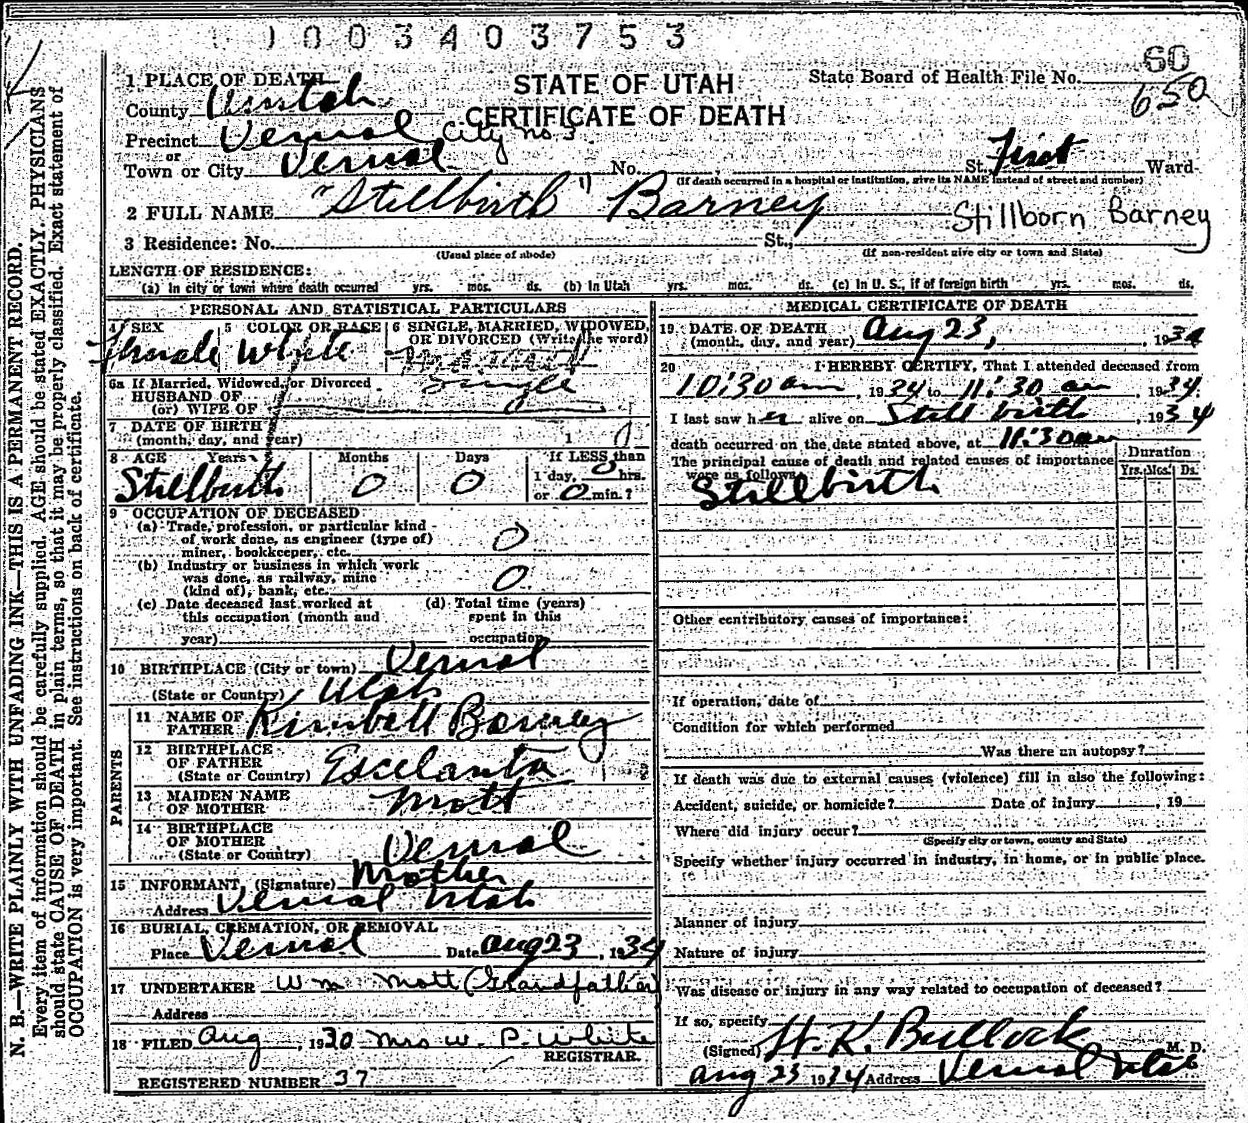 1003403753
STATE OF UTAH
CERTIFICATE OF DEATH
State Board of Health File No. 60
650
1 PLACE OF DEATH
County Uintah
Precinct Vernal City no 3
or
Town or City Vernal No. St., First Ward
(If death occurred in a hospital or institution, give its NAME instead of street and number)
2 FULL NAME "Stillbirth" Barney Stillborn Barney
3 Residence: No. St.,
(Usual place of abode) (If non-resident give city or town and State)
LENGTH OF RESIDENCE:
(a) In city or town where death occurred yrs. mos. ds. (b) In Utah yrs. mos. ds. (c) In U. S., if of foreign birth yrs. mos. ds.
PERSONAL AND STATISTICAL PARTICULARS
4 SEX 5 COLOR OR RACE 6 SINGLE, MARRIED, WIDOWED, OR DIVORCED (Write the word)
Female White Single
6a If Married, Widowed, or Divorced
HUSBAND OF
(or) WIFE OF
7 DATE OF BIRTH
(month, day, and year) 1 0
8 AGE Years Months Days If LESS than
1 day, 0 hrs.
Stillbirth 0 0 or 0 min.?
9 OCCUPATION OF DECEASED
(a) Trade, profession, or particular kind
of work done, as engineer (type of)
miner, bookkeeper, etc. 0
(b) Industry or business in which work
was done, as railway, mine
(kind of), bank, etc. 0
(c) Date deceased last worked at
this occupation (month and
year)
(d) Total time (years)
spent in this
occupation
10 BIRTHPLACE (City or town) Vernal
(State or Country) Utah
PARENTS
11 NAME OF
FATHER Kimbell Barney
12 BIRTHPLACE
OF FATHER
(State or Country) Escelanta
13 MAIDEN NAME
OF MOTHER Mott
14 BIRTHPLACE
OF MOTHER
(State or Country) Vernal
15 INFORMANT (Signature) Mother
Address Vernal Utah
16 BURIAL, CREMATION, OR REMOVAL
Place Vernal Date Aug 23, 1934
17 UNDERTAKER Wm Mott (Grandfather)
Address
18 FILED Aug, 1930 Mrs W. P. White
REGISTRAR.
REGISTERED NUMBER 37
MEDICAL CERTIFICATE OF DEATH
19 DATE OF DEATH
(month, day, and year) Aug 23, 1934
20 I HEREBY CERTIFY, That I attended deceased from
10:30 am, 1934 to 11:30 am, 1934.
I last saw her alive on Still birth, 1934
death occurred on the date stated above, at 11:30 am
The principal cause of death and related causes of importance
were as follows:
Stillbirth
Duration
Yrs. Mos. Ds.
Other contributory causes of importance:
If operation, date of
Condition for which performed
Was there an autopsy?
If death was due to external causes (violence) fill in also the following:
Accident, suicide, or homicide? Date of injury , 19
Where did injury occur?
(Specify city or town, county and State)
Specify whether injury occurred in industry, in home, or in public place.
Manner of injury
Nature of injury
Was disease or injury in any way related to occupation of deceased?
If so, specify
(Signed) H. K. Bullock M. D.
Aug 23 1934 Address Vernal Utah
N. B.—WRITE PLAINLY WITH UNFADING INK—THIS IS A PERMANENT RECORD.
Every item of information should be carefully supplied. AGE should be stated EXACTLY. PHYSICIANS
should state CAUSE OF DEATH in plain terms, so that it may be properly classified. Exact statement of
OCCUPATION is very important. See instructions on back of certificate.